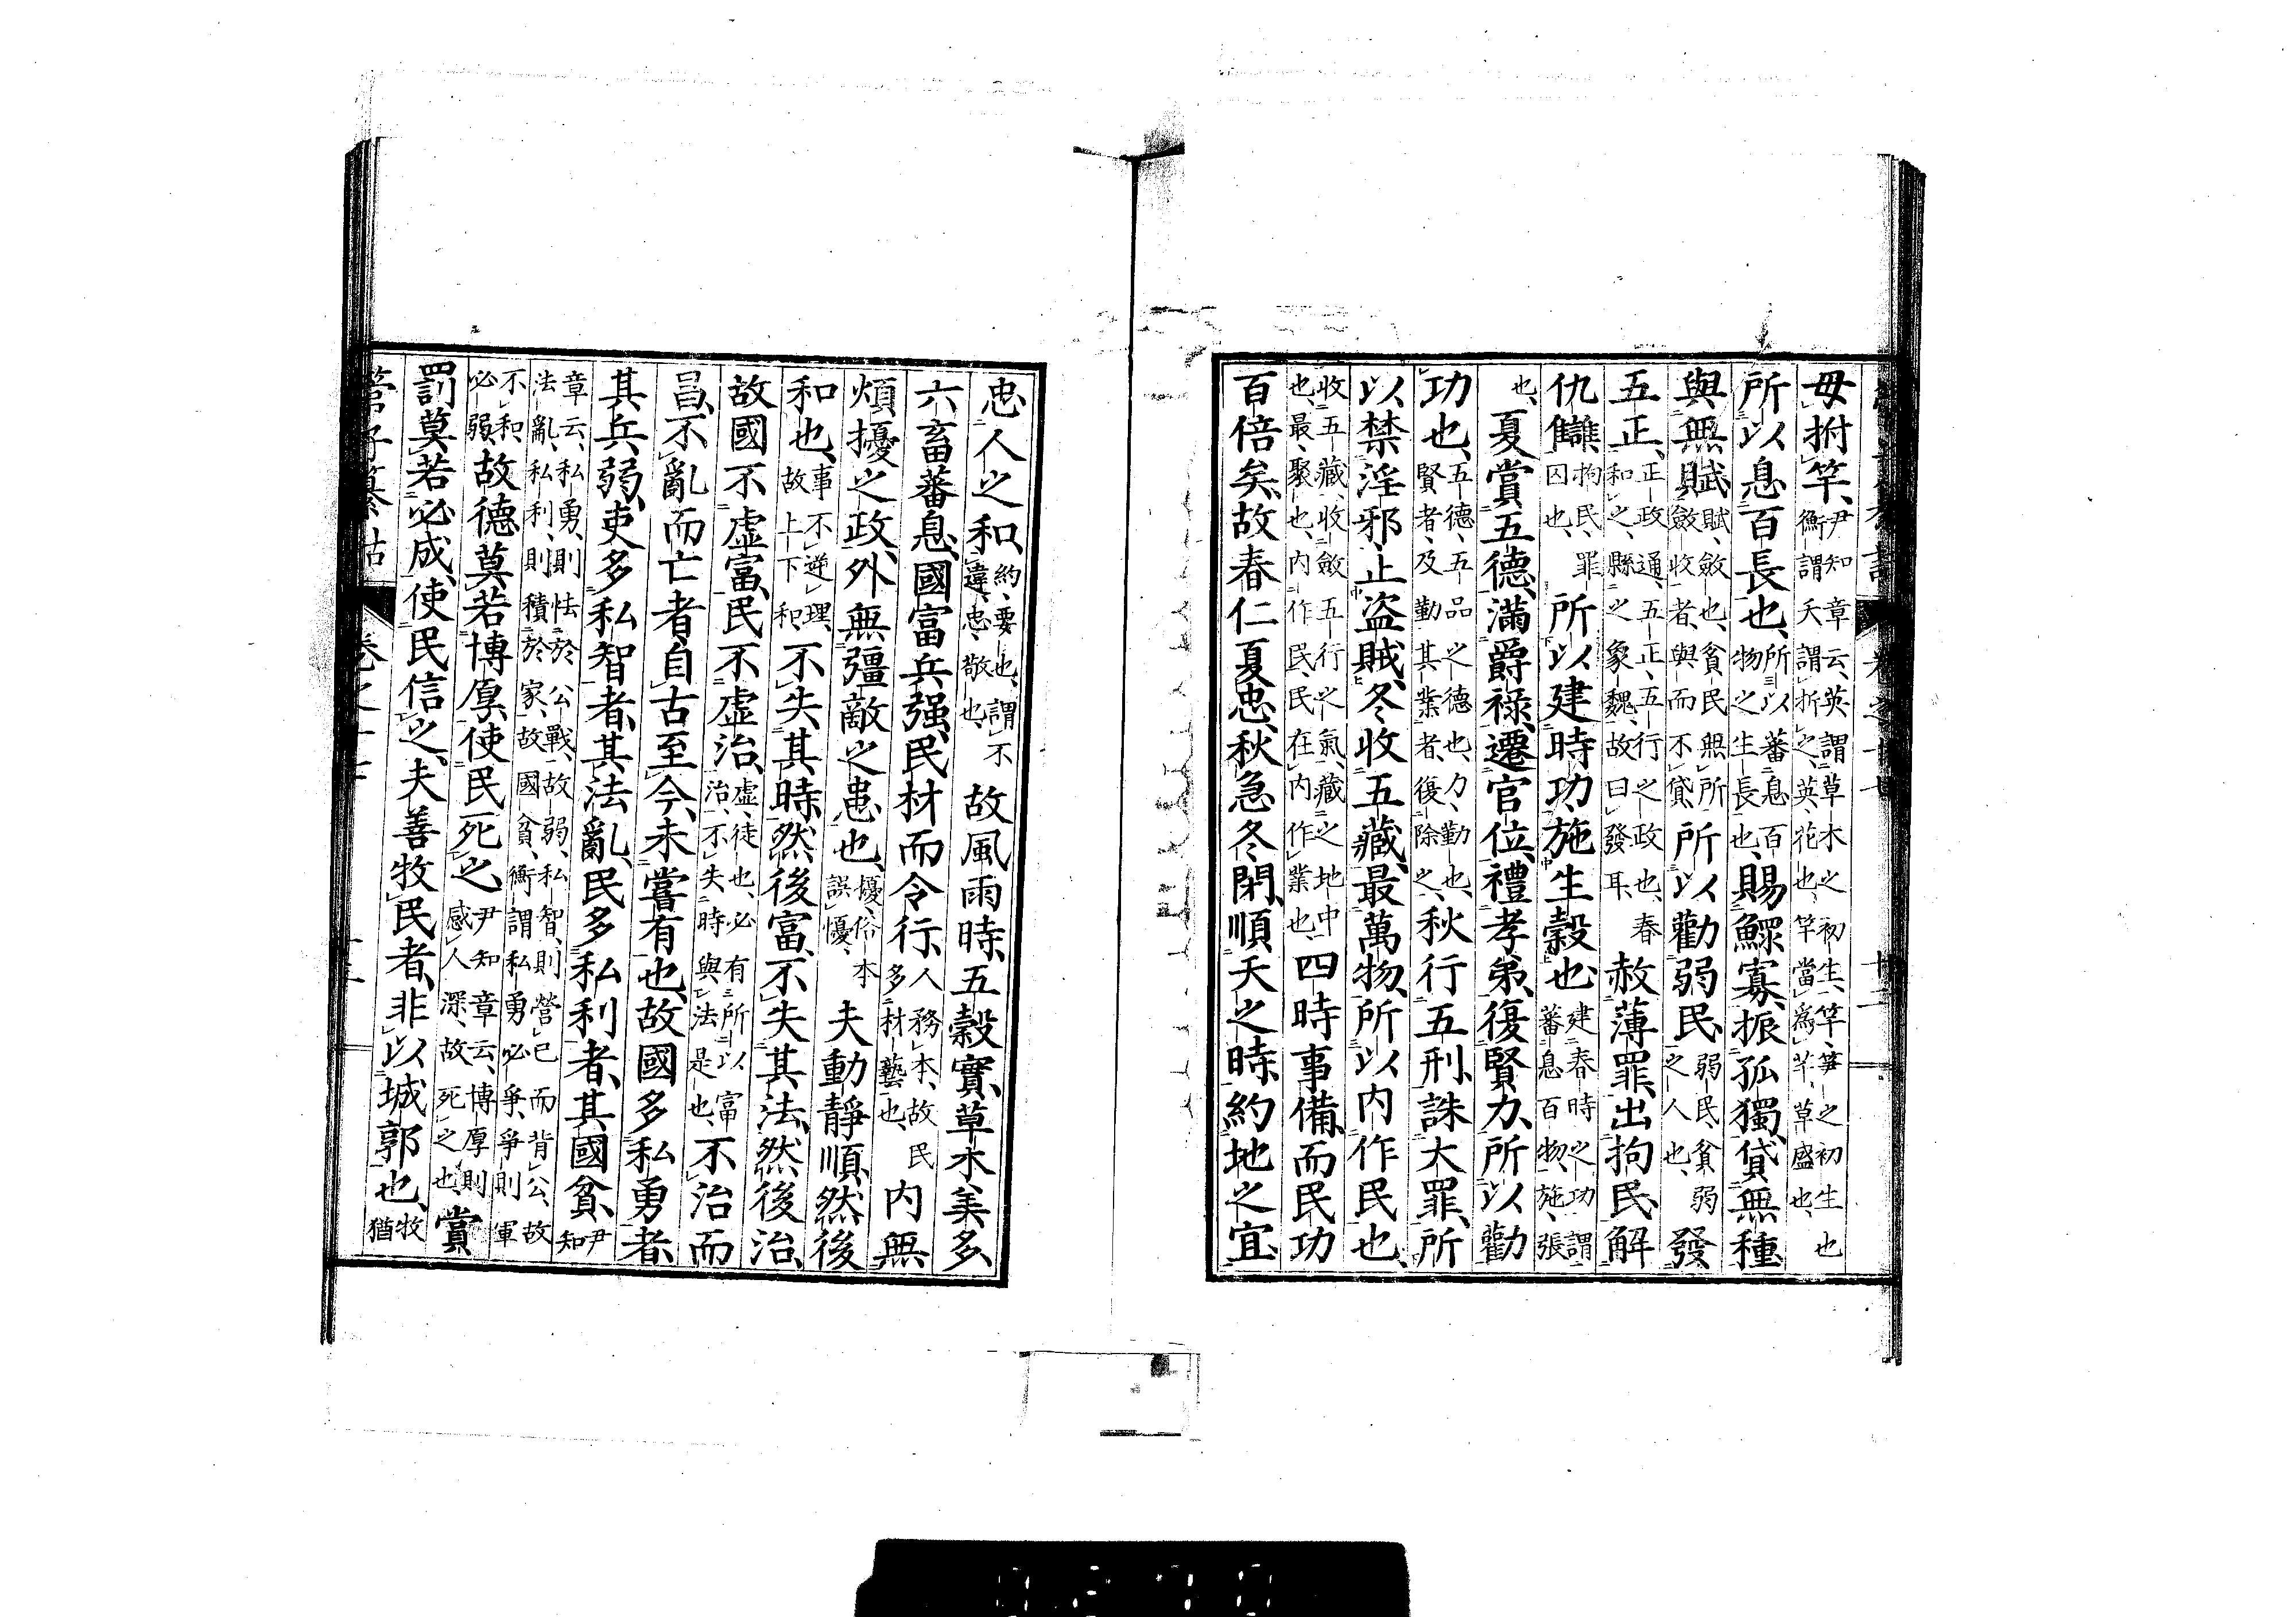 毋拊竿、尹知章云、英謂草木之初生、竿、筍之初生也衡謂夭謂折之、英、花也、竿當爲芉、草盛也、
所以息百長也、所以蕃息百物之生長也、賜鰥寡、振孤獨、貸無種、
與無賦、賦、斂也、貧民無所斂收者、與而不貸、所以勸弱民、弱民、貧弱之人也、發
五正、正政通、五正、五行之政也、春和之、縣之象魏、故曰發耳、赦薄罪、出拘民、解
仇讎、拘民、罪囚也、所以建時功、施生穀也、建春時之功、謂蕃息百物、施、張
也、夏賞五德、滿爵祿、遷官位、禮孝弟、復賢力、所以勸
功也、五德、五品之德也、力、勤也、賢者、及勤其業者、復除之、秋行五刑、誅大罪、所
以禁淫邪、止盜賊、冬收五藏、最萬物、所以内作民也、
收五藏、收斂五行之氣、藏之地中也、最、聚也、内作民、民在内作業也、四時事備、而民功
百倍矣、故春仁夏忠、秋急冬閉、順天之時、約地之宜、
忠人之和、約、要也、謂不違、忠、敬也、故風雨時、五穀實、草木美多、
六畜蕃息、國富兵强、民材而令行、人務本、故民多材藝也、内無
煩擾之政、外無彊敵之患也、擾、俗本誤憂、夫動靜順、然後
和也、事不逆理、故上下和、不失其時、然後富、不失其法、然後治、
故國不虛富、民不虛治、虛、徒也、必有所以富治、不失時與法是也、不治而
昌、不亂而亡者、自古至今、未嘗有也、故國多私勇者、
其兵弱、吏多私智者、其法亂、民多私利者、其國貧、尹知
章云、私勇、則怯於公戰、故弱、私智、則營己而背公、故法亂、私利、則積於家、故國貧、衡謂私勇必爭、爭則軍
不和、必弱、故德莫若博厚、使民死之、尹知章云、博厚則感人深、故死之也、賞
罰莫若必成、使民信之、夫善牧民者、非以城郭也、牧猶
管子纂詁 卷之十七